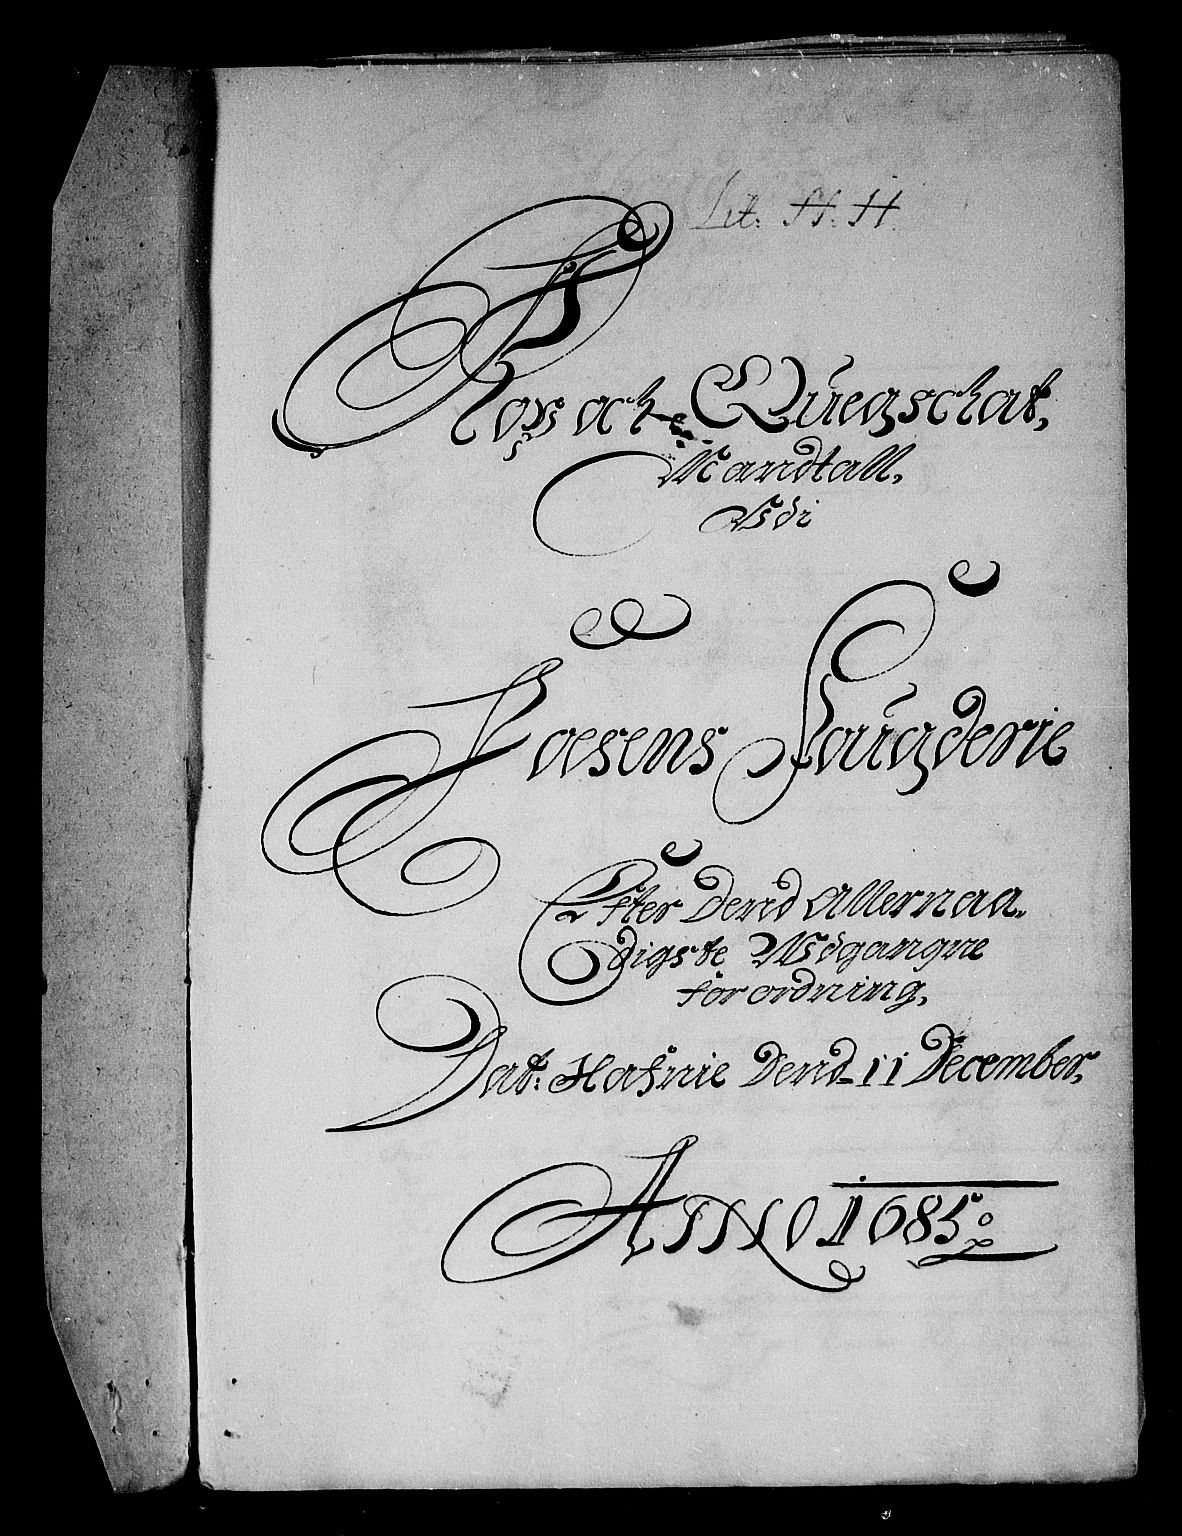 Lit: H. H.
Kop och Quegschat,
Mandtall,
Udi
Fosens Faugderie
Efter Dend Allernaa-
digste Udgangne
forordning,
Dat: Hafnie Dend 11 December,
ANNO 1685